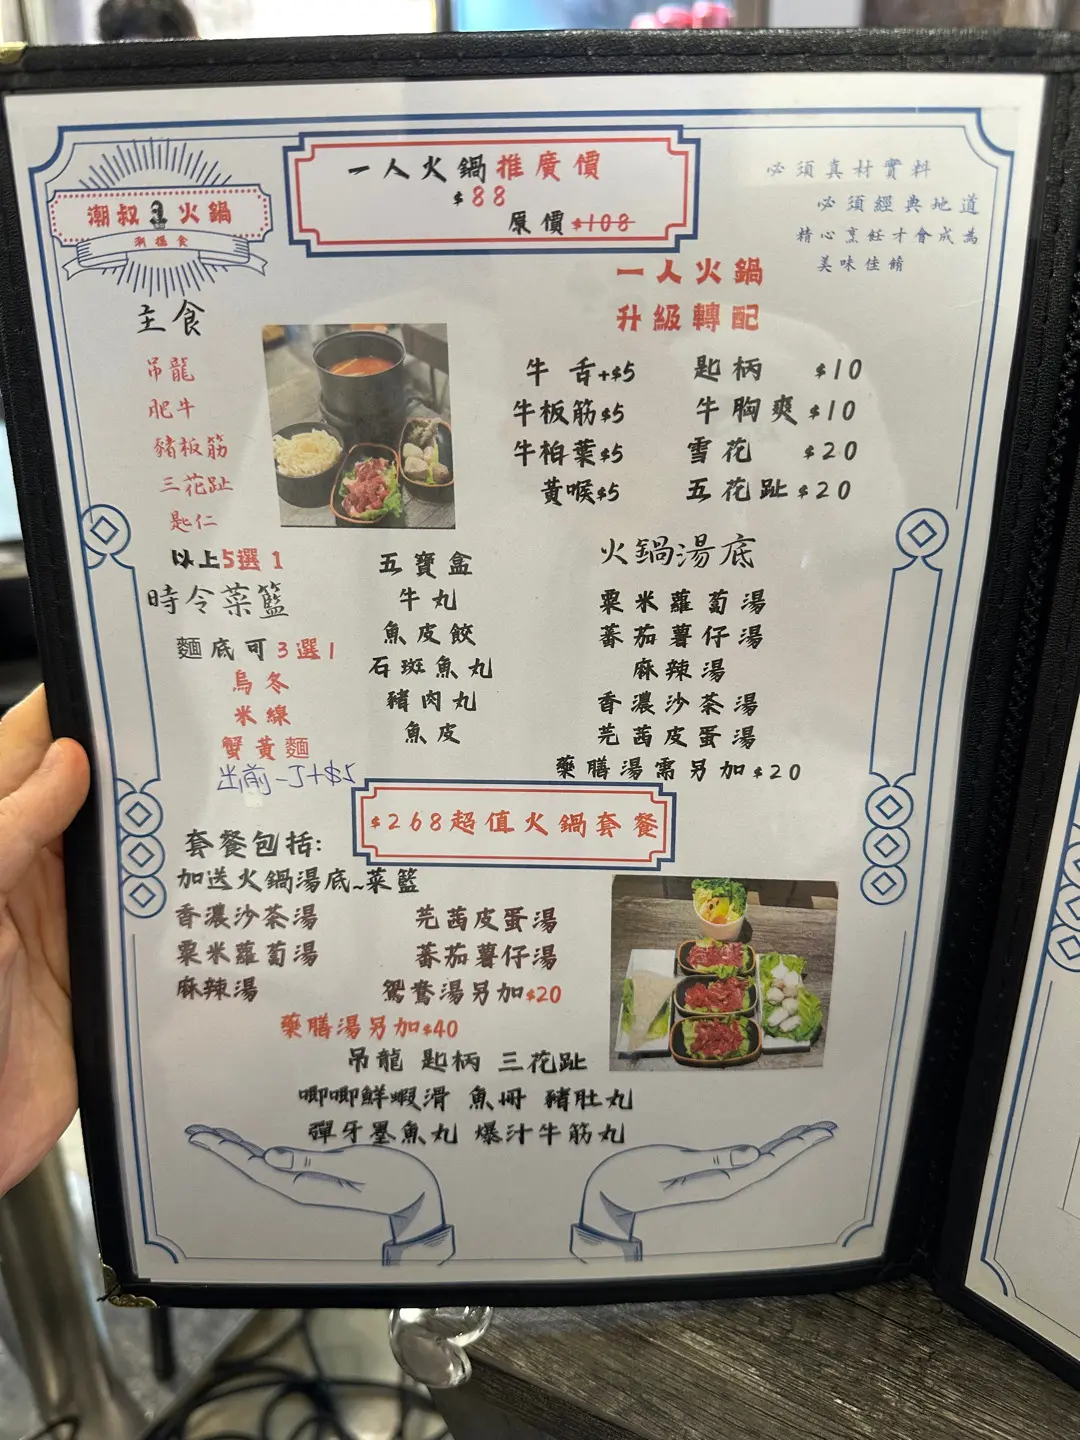 一人火鍋推廣價
$88
原價$108
潮叔火鍋
必須真材實料
必須經典地道
精心烹飪才會成為
美味佳餚
主食
吊龍
肥牛
豬板筋
三花趾
匙仁
以上5選1
時令菜籃
麵底可3選1
烏冬
米線
蟹黃麵
出前一丁+$5
一人火鍋
升級轉配
牛舌+$5 匙柄 $10
牛板筋$5 牛胸爽$10
牛柏葉$5 雪花 $20
黃喉$5 五花趾$20
五寶盒
牛丸
魚皮餃
石斑魚丸
豬肉丸
魚皮
火鍋湯底
粟米蘿蔔湯
蕃茄薯仔湯
麻辣湯
香濃沙茶湯
芫茜皮蛋湯
藥膳湯需另加$20
$268超值火鍋套餐
套餐包括:
加送火鍋湯底~菜籃
香濃沙茶湯 芫茜皮蛋湯
粟米蘿蔔湯 蕃茄薯仔湯
麻辣湯 鴛鴦湯另加$20
藥膳湯另加$40
吊龍 匙柄 三花趾
唧唧鮮蝦滑 魚册 豬肚丸
彈牙墨魚丸 爆汁牛筋丸